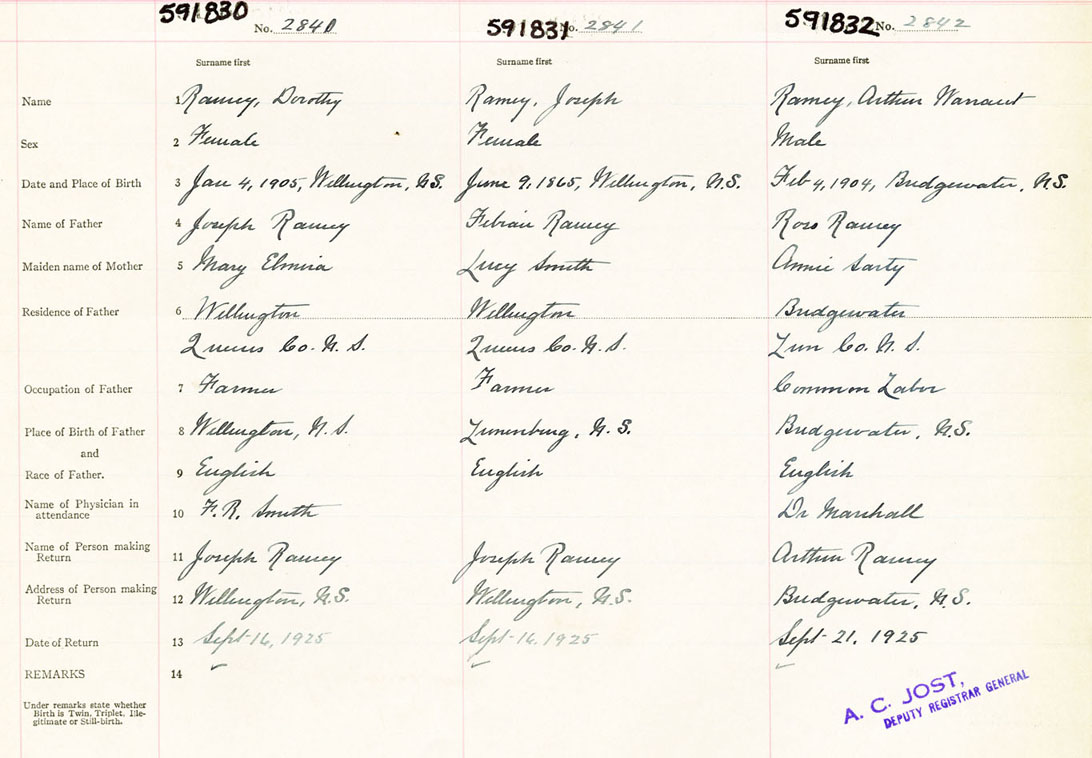 591830 No. 2840 591831 No. 2841 591832 No. 2842
Surname first Surname first Surname first
Name 1 Ramey, Dorothy Ramey, Joseph Ramey, Arthur Warraut
Sex 2 Female Female Male
Date and Place of Birth 3 Jan 4, 1905, Wellington, N.S. June 9, 1865, Wellington, N.S. Feb 4, 1904, Bridgewater, N.S.
Name of Father 4 Joseph Ramey Febian Ramey Ross Ramey
Maiden name of Mother 5 Mary Elmira Lucy Smith Annie Sarty
Residence of Father 6 Wellington Wellington Bridgewater
Queens Co. N. S. Queens Co. N. S. Lun Co. N. S.
Occupation of Father 7 Farmer Farmer Common Labor
Place of Birth of Father 8 Wellington, N. S. Lunenburg, N. S. Bridgewater, N.S.
and
Race of Father. 9 English English English
Name of Physician in
attendance 10 F. R. Smith Dr Marshall
Name of Person making
Return 11 Joseph Ramey Joseph Ramey Arthur Ramey
Address of Person making
Return 12 Wellington, N.S. Wellington, N.S. Bridgewater, N.S.
Date of Return 13 Sept 16, 1925 Sept 16, 1925 Sept 21, 1925
REMARKS 14
Under remarks state whether
Birth is Twin, Triplet, Ille-
gitimate or Still-birth.
A. C. JOST,
DEPUTY REGISTRAR GENERAL